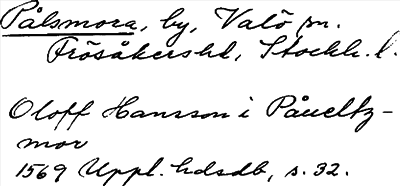 Pålsmora, by, Valö sn.
Frösåkershd, Stockh. l.
Oloff Hansson i Påueltz-
mor
1569 Uppl. hdsdb, s. 32.